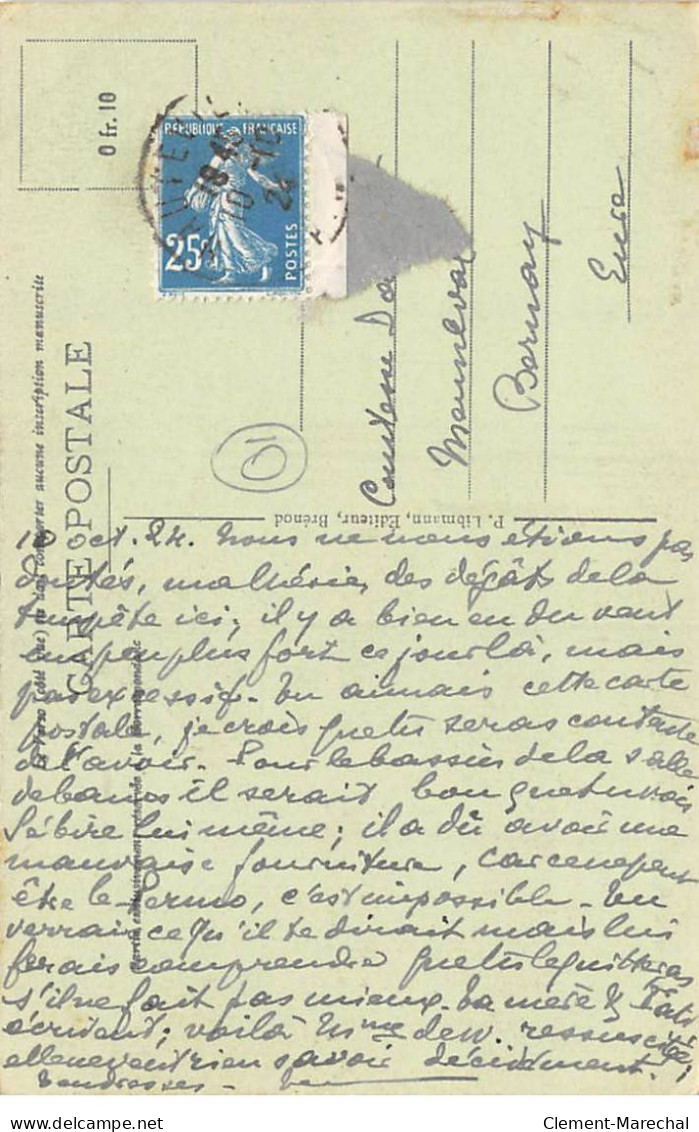 0 fr. 10
RÉPUBLIQUE FRANÇAISE
25c
POSTES
18 45
10 - 10
24
CARTE POSTALE
Comtesse
Menneval
Bernay
Eure
10
P. Libmann, Editeur, Brénod
10 oct. 24. Nous ne nous étions pas
doutés, ma chérie, des dégâts de la
tempête ici; il y a bien eu du vent
un peu plus fort ce jour là, mais
pas excessif. Tu aimais cette carte
postale, je crois que tu seras contente
de l'avoir. Pour le bassin de la salle
de bains il serait bon que tu voies
lui même; il a dû avoir une
mauvaise fourniture, car ce ne peut
être le Permo, c'est impossible. Tu
verrais ce qu'il te dirait mais lui
ferais comprendre que tu le quitteras
s'il ne fait pas mieux. Ta mère &
écrivent; voilà Mme de W. ressuscitée,
elle ne veut rien savoir décidément.
Tendresses -
Clement-Marechal